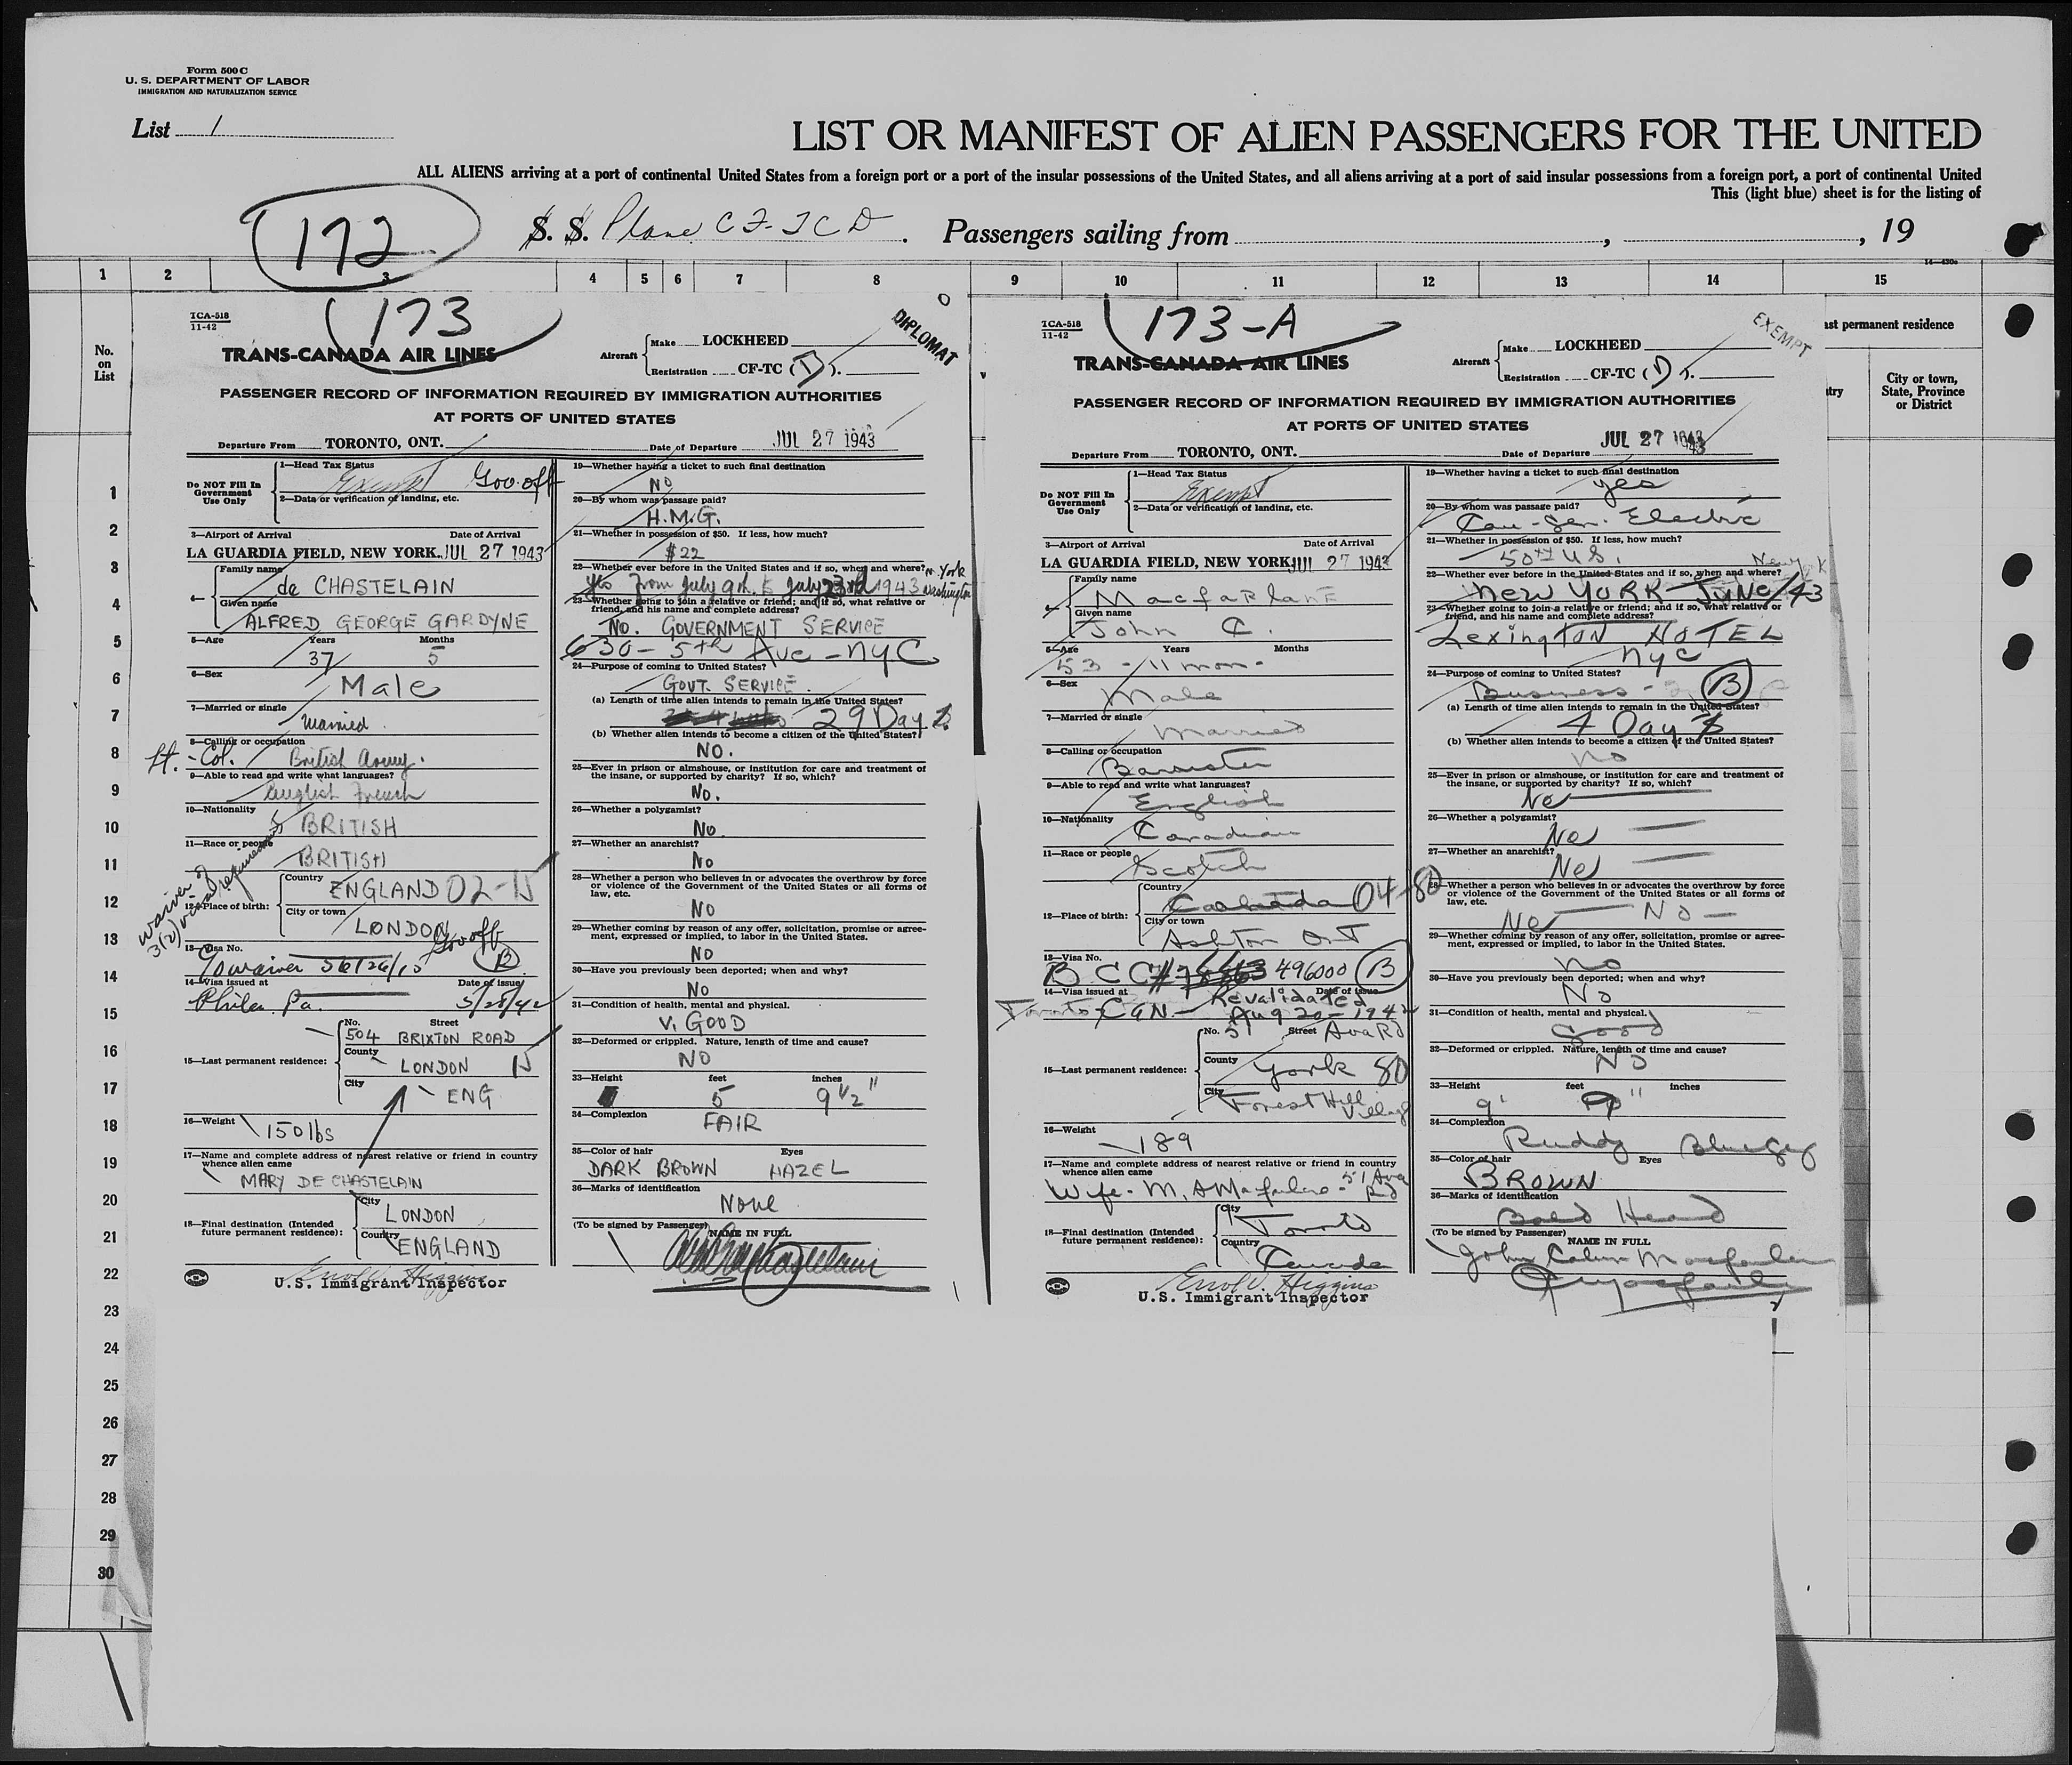 Form 500 C
U. S. DEPARTMENT OF LABOR
IMMIGRATION AND NATURALIZATION SERVICE
List 1
LIST OR MANIFEST OF ALIEN PASSENGERS FOR THE UNITED
ALL ALIENS arriving at a port of continental United States from a foreign port or a port of the insular possessions of the United States, and all aliens arriving at a port of said insular possessions from a foreign port, a port of continental United
This (light blue) sheet is for the listing of
172
S. S. Plane CF-TCD. Passengers sailing from , , 19
1 2 3 4 5 6 7 8 9 10 11 12 13 14 15
No. on List
ast permanent residence
try
City or town, State, Province or District
1
2
3
4
5
6
7
8
9
10
11
12
13
14
15
16
17
18
19
20
21
22
23
24
25
26
27
28
29
30
TCA-518
11-42
173
DIPLOMAT
TRANS-CANADA AIR LINES
Aircraft
Make LOCKHEED
Registration CF-TC (D).
PASSENGER RECORD OF INFORMATION REQUIRED BY IMMIGRATION AUTHORITIES
AT PORTS OF UNITED STATES
Departure From TORONTO, ONT. Date of Departure JUL 27 1943
Do NOT Fill In Government Use Only
1—Head Tax Status
Exempt Gov. off
2—Data or verification of landing, etc.
3—Airport of Arrival Date of Arrival
LA GUARDIA FIELD, NEW YORK. JUL 27 1943
4—
Family name
de CHASTELAIN
Given name
ALFRED GEORGE GARDYNE
5—Age Years Months
37 5
6—Sex
Male
7—Married or single
Married.
8—Calling or occupation
Lt. - Col. British Army.
9—Able to read and write what languages?
English French
10—Nationality
BRITISH
11—Race or people
BRITISH
waiver of
3(2) visa requirements
12—Place of birth:
Country
ENGLAND 02-15
City or town
LONDON
Gov off
13—Visa No.
waiver 56/26/15 B
14—Visa issued at Date of issue
Phila. Pa. 5/28/42
15—Last permanent residence:
No. Street
504 BRIXTON ROAD
County
LONDON 15
City
ENG
16—Weight
150 lbs
17—Name and complete address of nearest relative or friend in country
whence alien came
MARY DE CHASTELAIN
18—Final destination (Intended
future permanent residence):
City
LONDON
Country
ENGLAND
Errol V. Higgins
U.S. Immigrant Inspector
19—Whether having a ticket to such final destination
No
20—By whom was passage paid?
H.M.G.
21—Whether in possession of $50. If less, how much?
$22
22—Whether ever before in the United States and if so, when and where? N. York
yes from July 9th. to July 23rd 1943 Washington
23—Whether going to join a relative or friend; and if so, what relative or
friend, and his name and complete address?
No. GOVERNMENT SERVICE
630 - 5th Ave - NYC
24—Purpose of coming to United States?
GOVT. SERVICE.
(a) Length of time alien intends to remain in the United States?
29 Days
(b) Whether alien intends to become a citizen of the United States?
NO.
25—Ever in prison or almshouse, or institution for care and treatment of
the insane, or supported by charity? If so, which?
No.
26—Whether a polygamist?
No.
27—Whether an anarchist?
No
28—Whether a person who believes in or advocates the overthrow by force
or violence of the Government of the United States or all forms of
law, etc.
NO
29—Whether coming by reason of any offer, solicitation, promise or agree-
ment, expressed or implied, to labor in the United States.
NO
30—Have you previously been deported; when and why?
NO
31—Condition of health, mental and physical.
V. GOOD
32—Deformed or crippled. Nature, length of time and cause?
NO
33—Height feet inches
5 9 1/2 "
34—Complexion
FAIR
35—Color of hair Eyes
DARK BROWN HAZEL
36—Marks of identification
None
(To be signed by Passenger) NAME IN FULL
TCA-518
11-42
173-A
EXEMPT
TRANS-CANADA AIR LINES
Aircraft
Make LOCKHEED
Registration CF-TC (D).
PASSENGER RECORD OF INFORMATION REQUIRED BY IMMIGRATION AUTHORITIES
AT PORTS OF UNITED STATES
Departure From TORONTO, ONT. Date of Departure JUL 27 1943
Do NOT Fill In Government Use Only
1—Head Tax Status
Exempt
2—Data or verification of landing, etc.
3—Airport of Arrival Date of Arrival
LA GUARDIA FIELD, NEW YORK JUL 27 1943
4—
Family name
Macfarlane
Given name
John C.
5—Age Years Months
53 - 11 mon -
6—Sex
Male
7—Married or single
Married
8—Calling or occupation
Barrister
9—Able to read and write what languages?
English
10—Nationality
Canadian
11—Race or people
Scotch
12—Place of birth:
Country
Canada 04-80
City or town
Ashton Ont
13—Visa No.
B.C.C# 496000 B
14—Visa issued at Date of issue
Toronto CAN. Revalidated
Aug 20-1942
15—Last permanent residence:
No. 51 Street Ava Rd
County
York 80
City
Forest Hill Village
16—Weight
189
17—Name and complete address of nearest relative or friend in country
whence alien came
Wife - M. A Macfarlane - 51 Ava Rd
18—Final destination (Intended
future permanent residence):
City
Toronto
Country
Canada
Errol V. Higgins
U.S. Immigrant Inspector
19—Whether having a ticket to such final destination
yes
20—By whom was passage paid?
Can - Gen. Electric
21—Whether in possession of $50. If less, how much?
50 U S.
22—Whether ever before in the United States and if so, when and where?
New York
New YORK - JUNE/43
23—Whether going to join a relative or friend; and if so, what relative or
friend, and his name and complete address?
Lexington HOTEL
NYC
24—Purpose of coming to United States?
Business - B
(a) Length of time alien intends to remain in the United States?
4 Days
(b) Whether alien intends to become a citizen of the United States?
no
25—Ever in prison or almshouse, or institution for care and treatment of
the insane, or supported by charity? If so, which?
No
26—Whether a polygamist?
No
27—Whether an anarchist?
No
28—Whether a person who believes in or advocates the overthrow by force
or violence of the Government of the United States or all forms of
law, etc.
No — No —
29—Whether coming by reason of any offer, solicitation, promise or agree-
ment, expressed or implied, to labor in the United States.
No
30—Have you previously been deported; when and why?
No
31—Condition of health, mental and physical.
Good
32—Deformed or crippled. Nature, length of time and cause?
No
33—Height feet inches
34—Complexion
Ruddy
35—Color of hair Eyes
BROWN
36—Marks of identification
Bald Head
(To be signed by Passenger)
NAME IN FULL
John Calvin Macfarlane